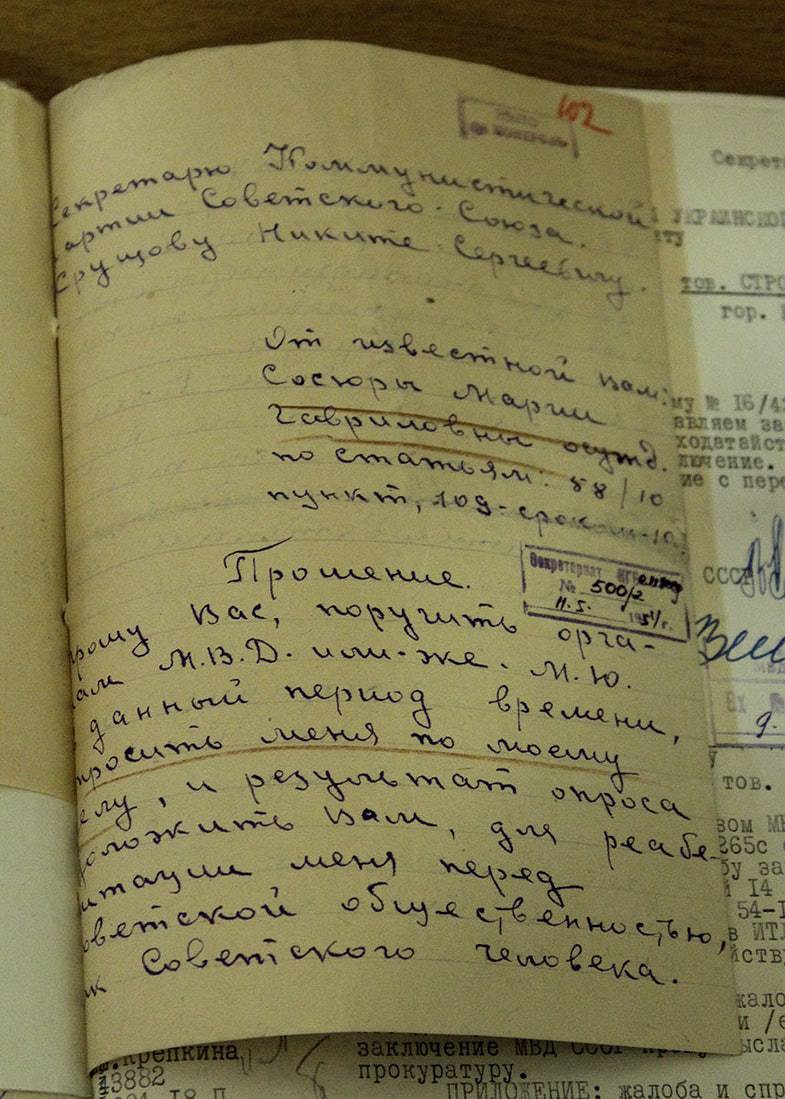 102
на контроль
Секретарю Коммунистической
партии Советского-Союза.
Хрущову Никите-Сергеевичу.
От известной вам:
Сосюры Марии
Гавриловны осужд.
по статьям: 58/10
пункт,
Прошение.
Секретариат
№ 500/2
11.5. 1954г.
прошу Вас, поручить орга-
нам М.В.Д. или-же. М.Ю.
в данный период времени,
опросить меня по моему
делу, и результат опроса
доложить вам, для реабе-
литации меня перед
советской общественностью,
как Советского человека.
Секрет
УКРАИНСКОЙ
тов. СТРО
гор.
му № 16/4
авляем за
ходатайст
лючение.
ие с пере
СССР
9.
тов.
зом М
265с
бу за
14
54-1
в ИТЛ
йству
жало
и /е
ысла
Крепкина
43882
заключение МВД СССР
прокуратуру.
ПРИЛОЖЕНИЕ: жалоба и спр